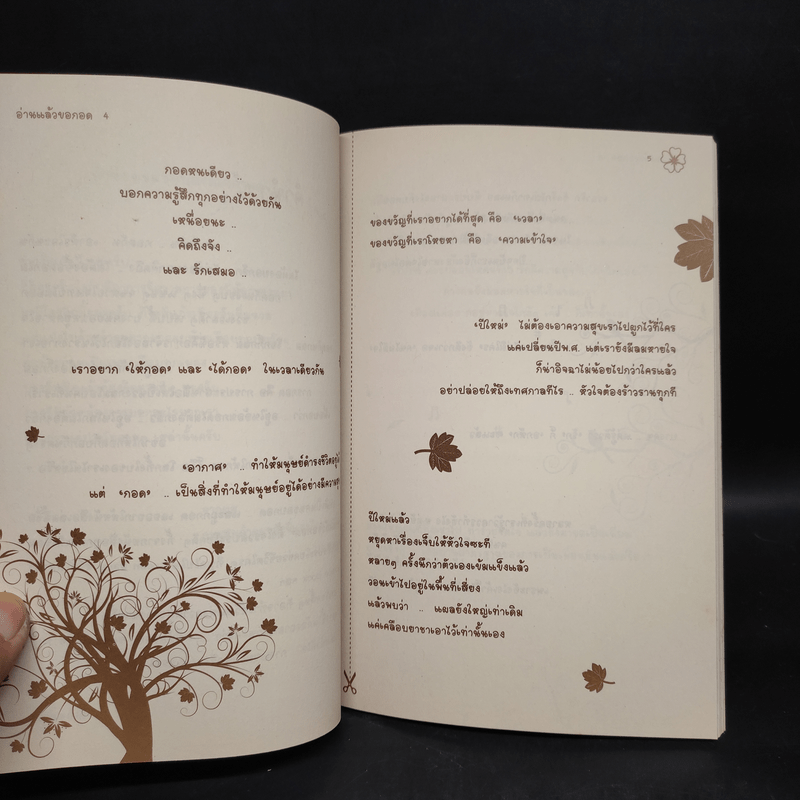 อ่านแล้วขอกอด 4
กอดหนเดียว ..
บอกความรู้สึกทุกอย่างไว้ด้วยกัน
เหนื่อยนะ ..
คิดถึงจัง ..
และ รักเสมอ ..
เราอยาก "ให้กอด" และ "ได้กอด" ในเวลาเดียวกัน
"อากาศ" .. ทำให้มนุษย์ดำรงชีวิตอยู่ได้
แต่ "กอด" .. เป็นสิ่งที่ทำให้มนุษย์อยู่ได้อย่างมี
5
ของขวัญที่เราอยากได้ที่สุด คือ "เวลา"
ของขวัญที่เราโหยหา คือ "ความเข้าใจ"
"ปีใหม่" ไม่ต้องเอาความสุขเราไปผูกไว้ที่ใคร
แค่เปลี่ยนปีพ.ศ. แต่เรายังมีลมหายใจ
ก็น่าอิจฉาไม่น้อยไปกว่าใครแล้ว
อย่าปล่อยให้ถึงเทศกาลทีไร .. หัวใจต้องร้าวรานทุกที
ปีใหม่แล้ว
หยุดหาเรื่องเจ็บให้หัวใจซะที
หลายๆ ครั้งนึกว่าตัวเองเข้มแข็งแล้ว
วอนเข้าไปอยู่ในพื้นที่เสี่ยง
แล้วพบว่า .. แผลยังใหญ่เท่าเดิม
แค่เคลือบยาชาเอาไว้เท่านั้นเอง